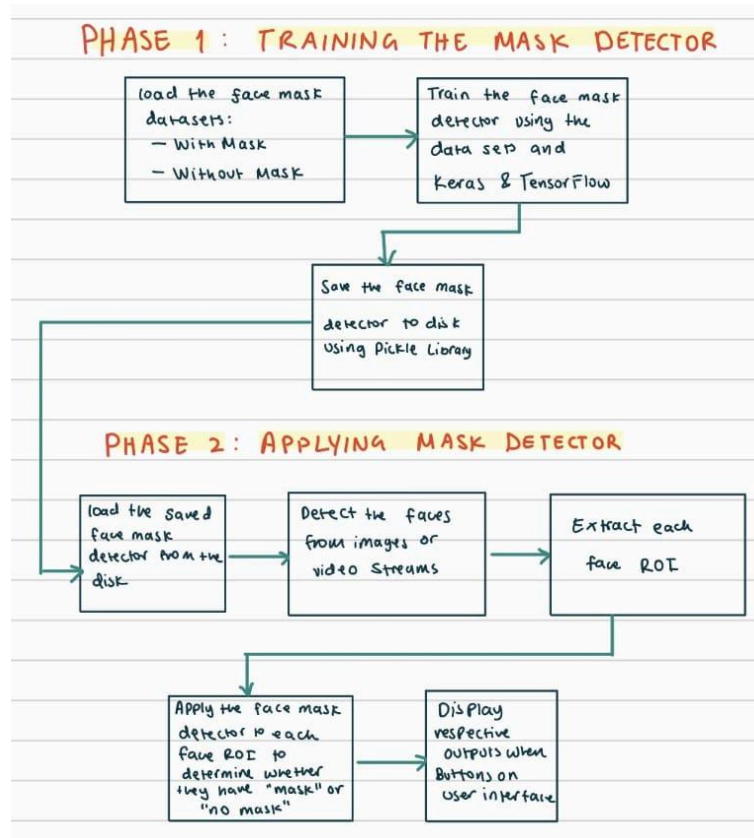 PHASE 1 : TRAINING THE MASK DETECTOR
load the face mask
datasets:
- With Mask
- Without Mask
Train the face mask
detector using the
data sets and
Keras & TensorFlow
Save the face mask
detector to disk
using Pickle Library
PHASE 2 : APPLYING MASK DETECTOR
load the saved
face mask
detector from the
disk
Detect the faces
from images or
video streams
Extract each
face ROI
Apply the face mask
detector to each
face ROI to
determine whether
they have "mask" or
"no mask"
Display
respective
outputs when
Buttons on
user interface